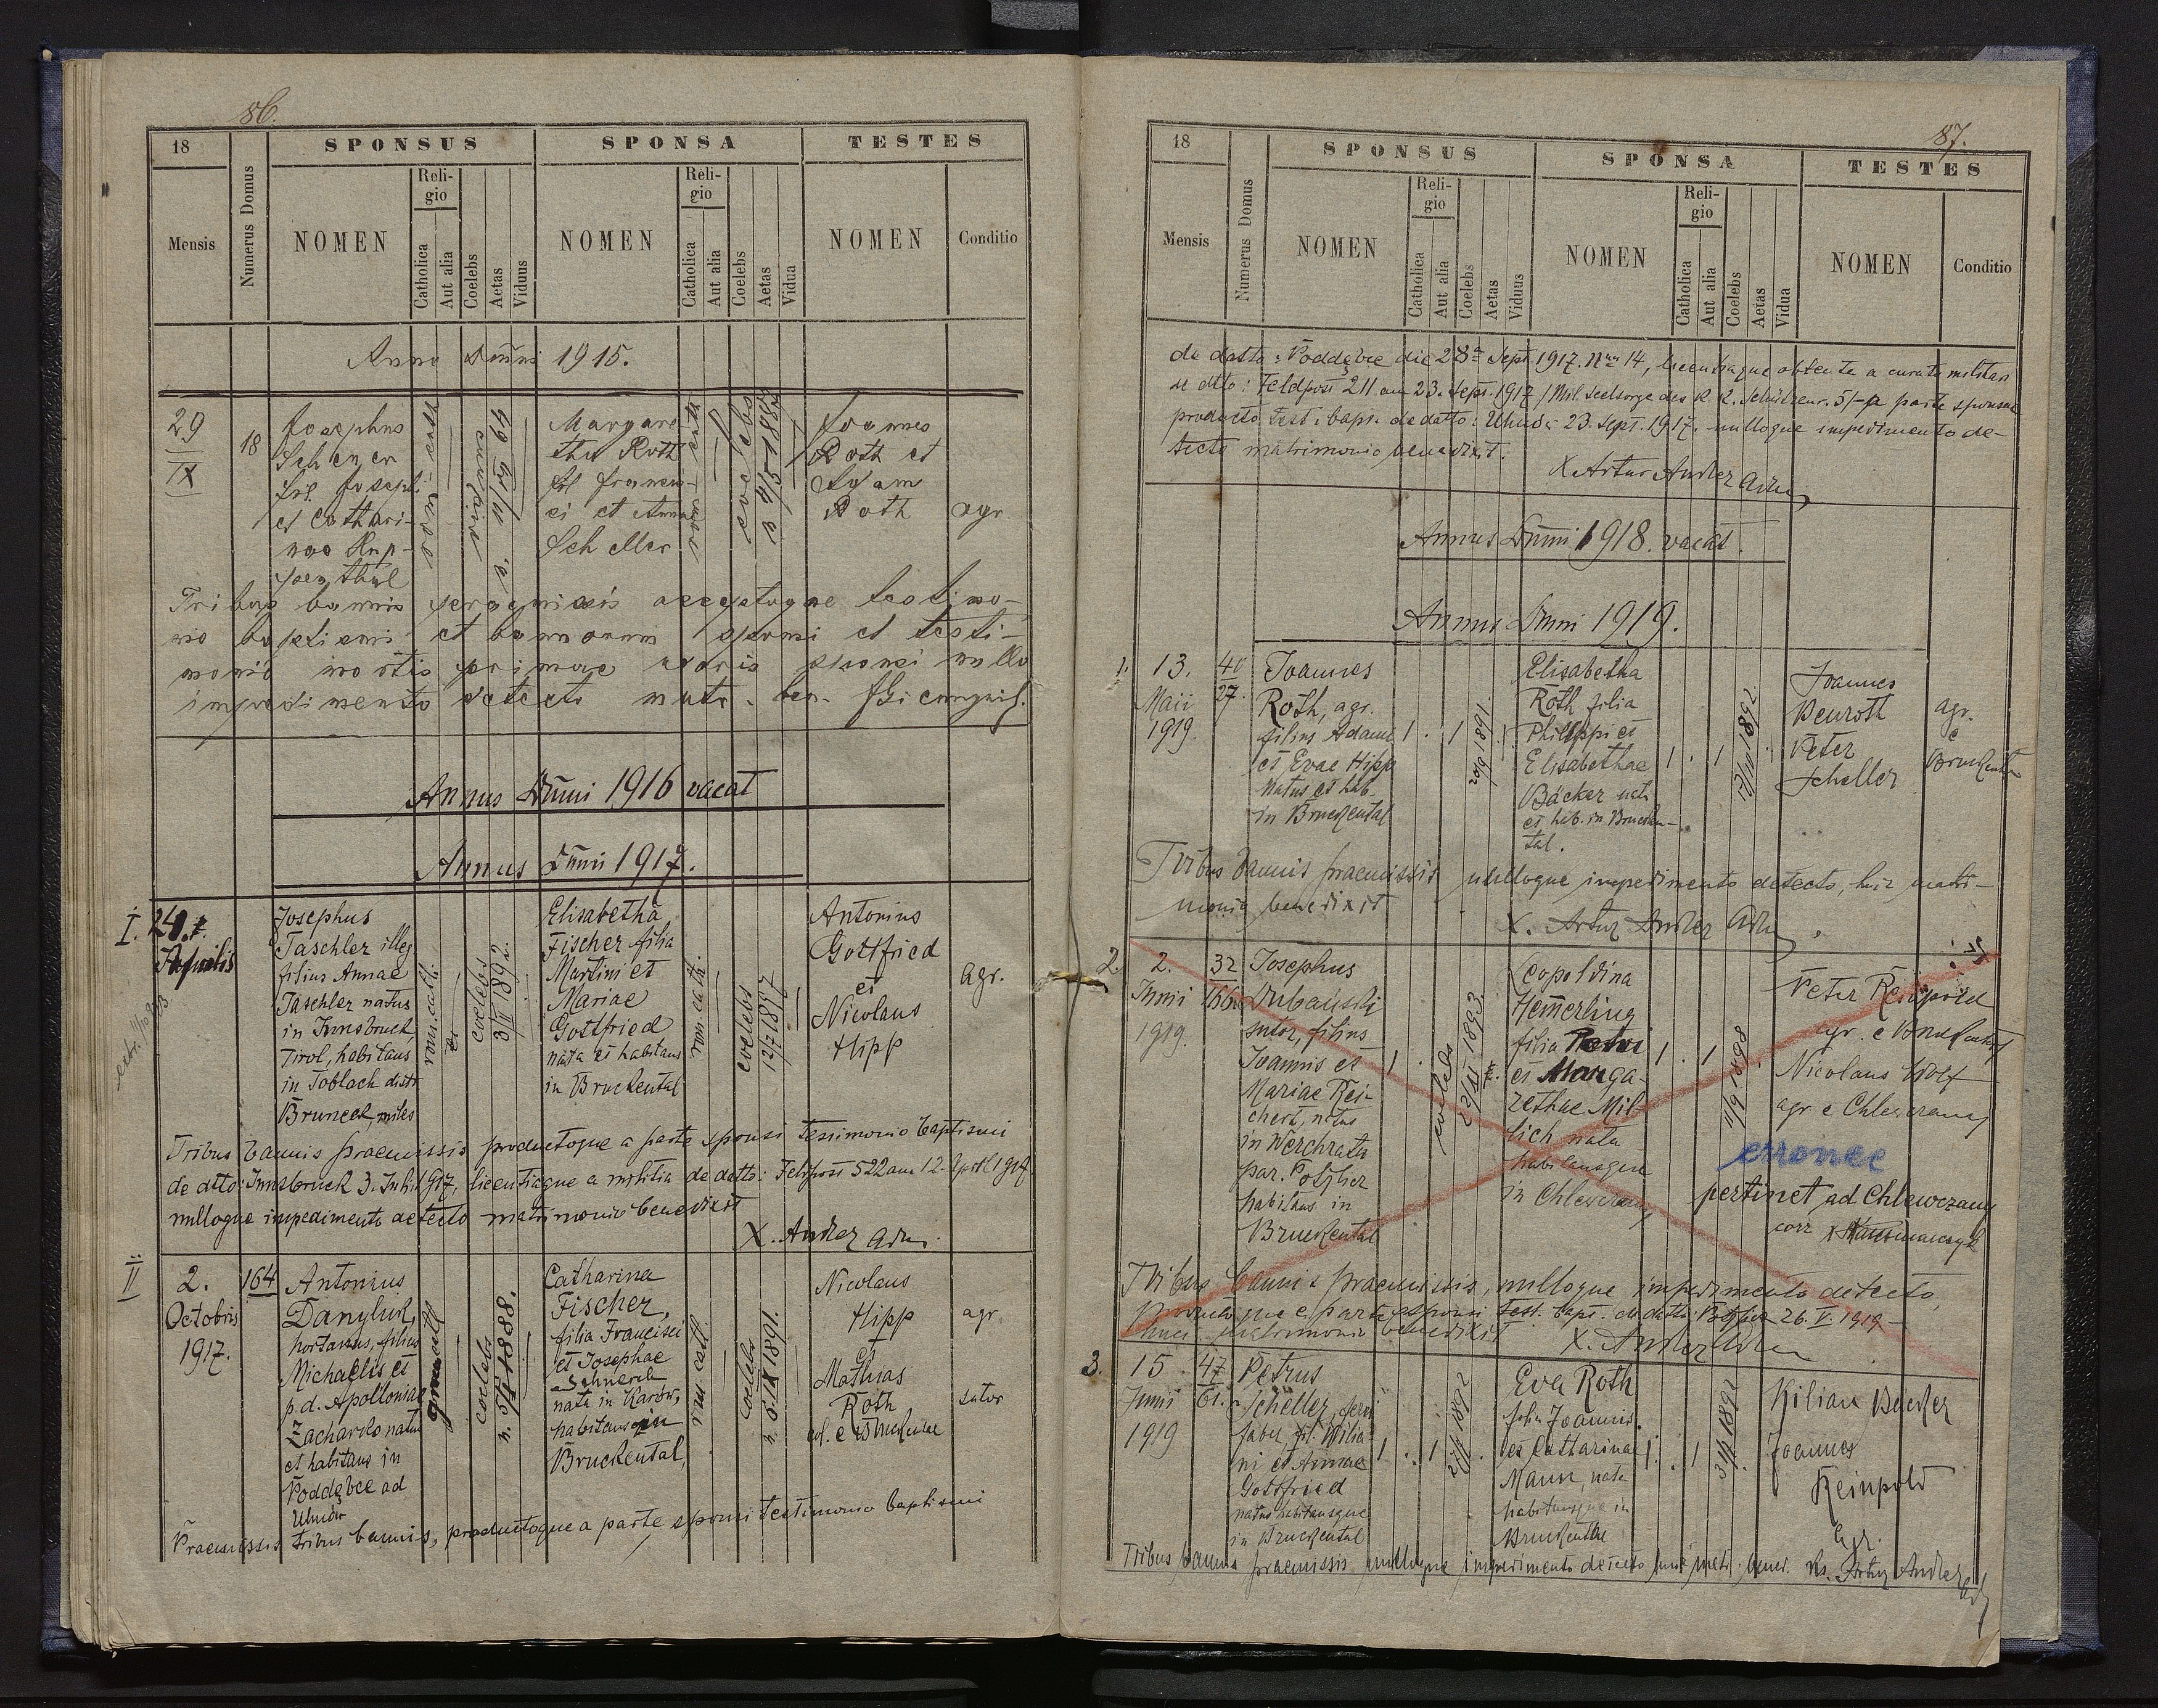 86.
18
SPONSUS
SPONSA
TESTES
Mensis
Numerus Domus
NOMEN
Religio
Catholica
Aut alia
Coelebs
Aetas
Viduus
NOMEN
Religio
Catholica
Aut alia
Coelebs
Aetas
Vidua
NOMEN
Conditio
Anno Domini 1915.
29
IX
18
Josephus
Scherer
fil. Josephi
et Cathari-
nae
rom cath
Margare-
tha Roth
fil francis-
ci et Annae
Scheller
rom cath
coelebs
Joannes
Roth et
Adam
Roth
agr
Tribus bannis praemissis acceptoque testimo-
nio baptismi et bannorum sponsi et testi-
monio mortis primae uxoris sponsi nullo
impedimento detecto matr. ben.
Annus Dmni 1916 vacat
Annus Dmni 1917.
I.
Josephus
Taschler illeg
filius Annae
Taschler natus
in Innsbruck,
Tirol, habitans
in Toblach distr
Bruneck, miles
rom. cath.
coelebs
3/II 1892.
Elisabetha
Fischer filia
Martini et
Mariae
Gottfried
nata et habitans
in Bruckental
rom. cath.
coelebs
12/7 1897
Antonius
Gottfried
et
Nicolaus
Hipp
agr.
Tribus bannis praemissis productoque a parte sponsi testimonio baptismi
de dtto: Innsbruck 3. Juli 1917, licentiaque a militia de datto: Feldpost 522 am 12. April 1917
nulloque impedimento detecto matrimonio benedixit
X. Andler Adm.
II
2.
Octobris
1917.
164
Antonius
Danyluk,
hortanus, filius
Michaelis et
p.d. Apolloniae
Zacharko natus
et habitans in
Poddębce ad
Uhnów
coelebs
Catharina
Fischer,
filia Francisci
et Josephae
Schnerch
nata in Karów,
habitans in
Bruckental,
rom. cath.
coelebs
n. 6. IX 1891.
Nicolaus
Hipp
et
Mathias
Roth
agr
sutor
Praemissis tribus bannis, productoque a parte sponsi testimonio baptismi
87.
18
SPONSUS
SPONSA
TESTES
Mensis
Numerus Domus
NOMEN
Religio
Catholica
Aut alia
Coelebs
Aetas
Viduus
NOMEN
Religio
Catholica
Aut alia
Coelebs
Aetas
Vidua
NOMEN
Conditio
de datto: Poddębce die 28a Sept 1917. 14, licentiaque obtenta a curatu militari
de dtto: Feldpost 211 am 23. Sept. 1917 /Mil. Seelsorge des K. K. Schützenr. 5/ a parte sponsae
producto test. bapt. de datto: Uhnów 23. Sept. 1917. nulloque impedimento de-
tecto matrimonio benedixit.
X. Artur Andler Adm
Annus Dmni 1918. vacat.
Annus Dmni 1919.
1.
13.
Maii
1919
40
27.
Joannes
Roth, agr.
filius Adami
et Evae Hipp
natus et hab.
in Bruckental
1
1
20/9 1891
Elisabetha
Roth filia
Philippi et
Elisabethae
Bäcker nata
et hab. in Brucken-
tal.
1
1
Joannes
Benroth
Peter
Scheller
agr.
e
Tribus bannis praemissis nulloque impedimento detecto, huic matri-
monio benedixit
X. Artur Andler Adm
2.
2.
Junii
1919.
32
Josephus
Dubański
sutor, filius
Joannis et
Mariae Rei-
chert, natus
in Werchrata
par. Potylicz
habitans in
Bruckental
1
coelebs
Leopoldina
Hemerling
filia Petri
et Marga-
rethae Mil-
lich nata
habitansque
in Chlewczany
1
1
11/9 1898
Peter Reinpold
agr. e Bruckental
Nicolaus Wolf
agr e Chlewczany
erronee
pertinet ad Chlewczany
Tribus bannis praemissis, nulloque impedimento detecto,
productoque e parte sponsi test. bapt. de datto: 26. V. 1919
huic matrimonio benedixit
X. Andler Adm
3.
15
Junii
1919
47
61.
Petrus
Scheller, ferri
faber, fil. Wilia-
mi et Annae
Gottfried
natus habitansque
in Bruckental
1
1
Eva Roth
filia Joannis
et Catharinae
Mann, nata
habitansque in
Bruckental
1
1
Kilian Becker
Joannes
Reinpold
agr.
Tribus bannis praemissis nulloque impedimento detecto huic matr. bened. Ks. Artur Andler